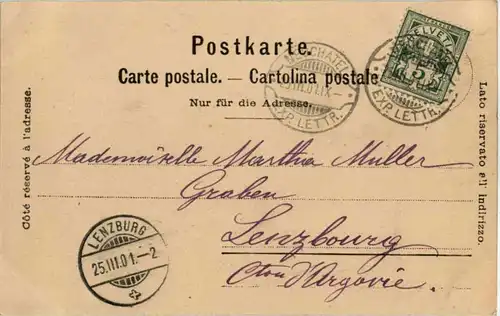 Postkarte.
Carte postale. — Cartolina postale
Nur für die Adresse.
Côté réservé à l'adresse.
Lato riservato all' indirizzo.
HELVETIA
5
EXP. LETTR.
25.III.01.IX–
EXP. LETTR.
Mademoiselle Martha Müller
Graben
Lenzbourg
Cton d'Argovie.
LENZBURG
25.III.01.–2